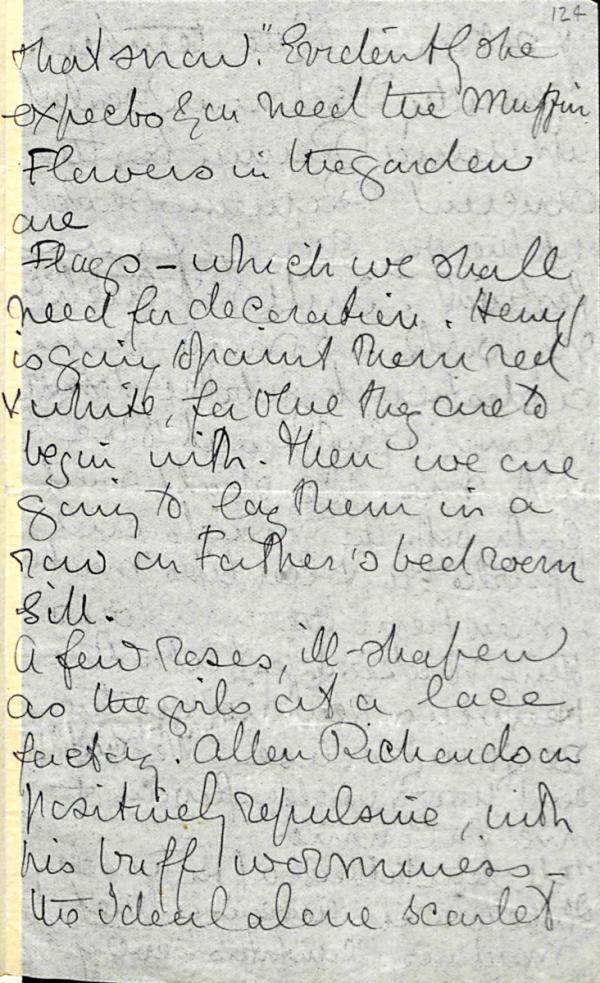 124
that snow." Evidently she
expects you need the muffin
Flowers in the garden
are
Flags – which we shall
need for decoration. Henry
is going to paint them red
& white, for blue they are to
begin with. Then we are
going to lay them in a
row on Father's bedroom
Sill.
A few Roses, ill-shapen
as the girls at a lace
factory. Allen Richardson
positively repulsive, with
his buff worminess –
the Ideal alone scarlet